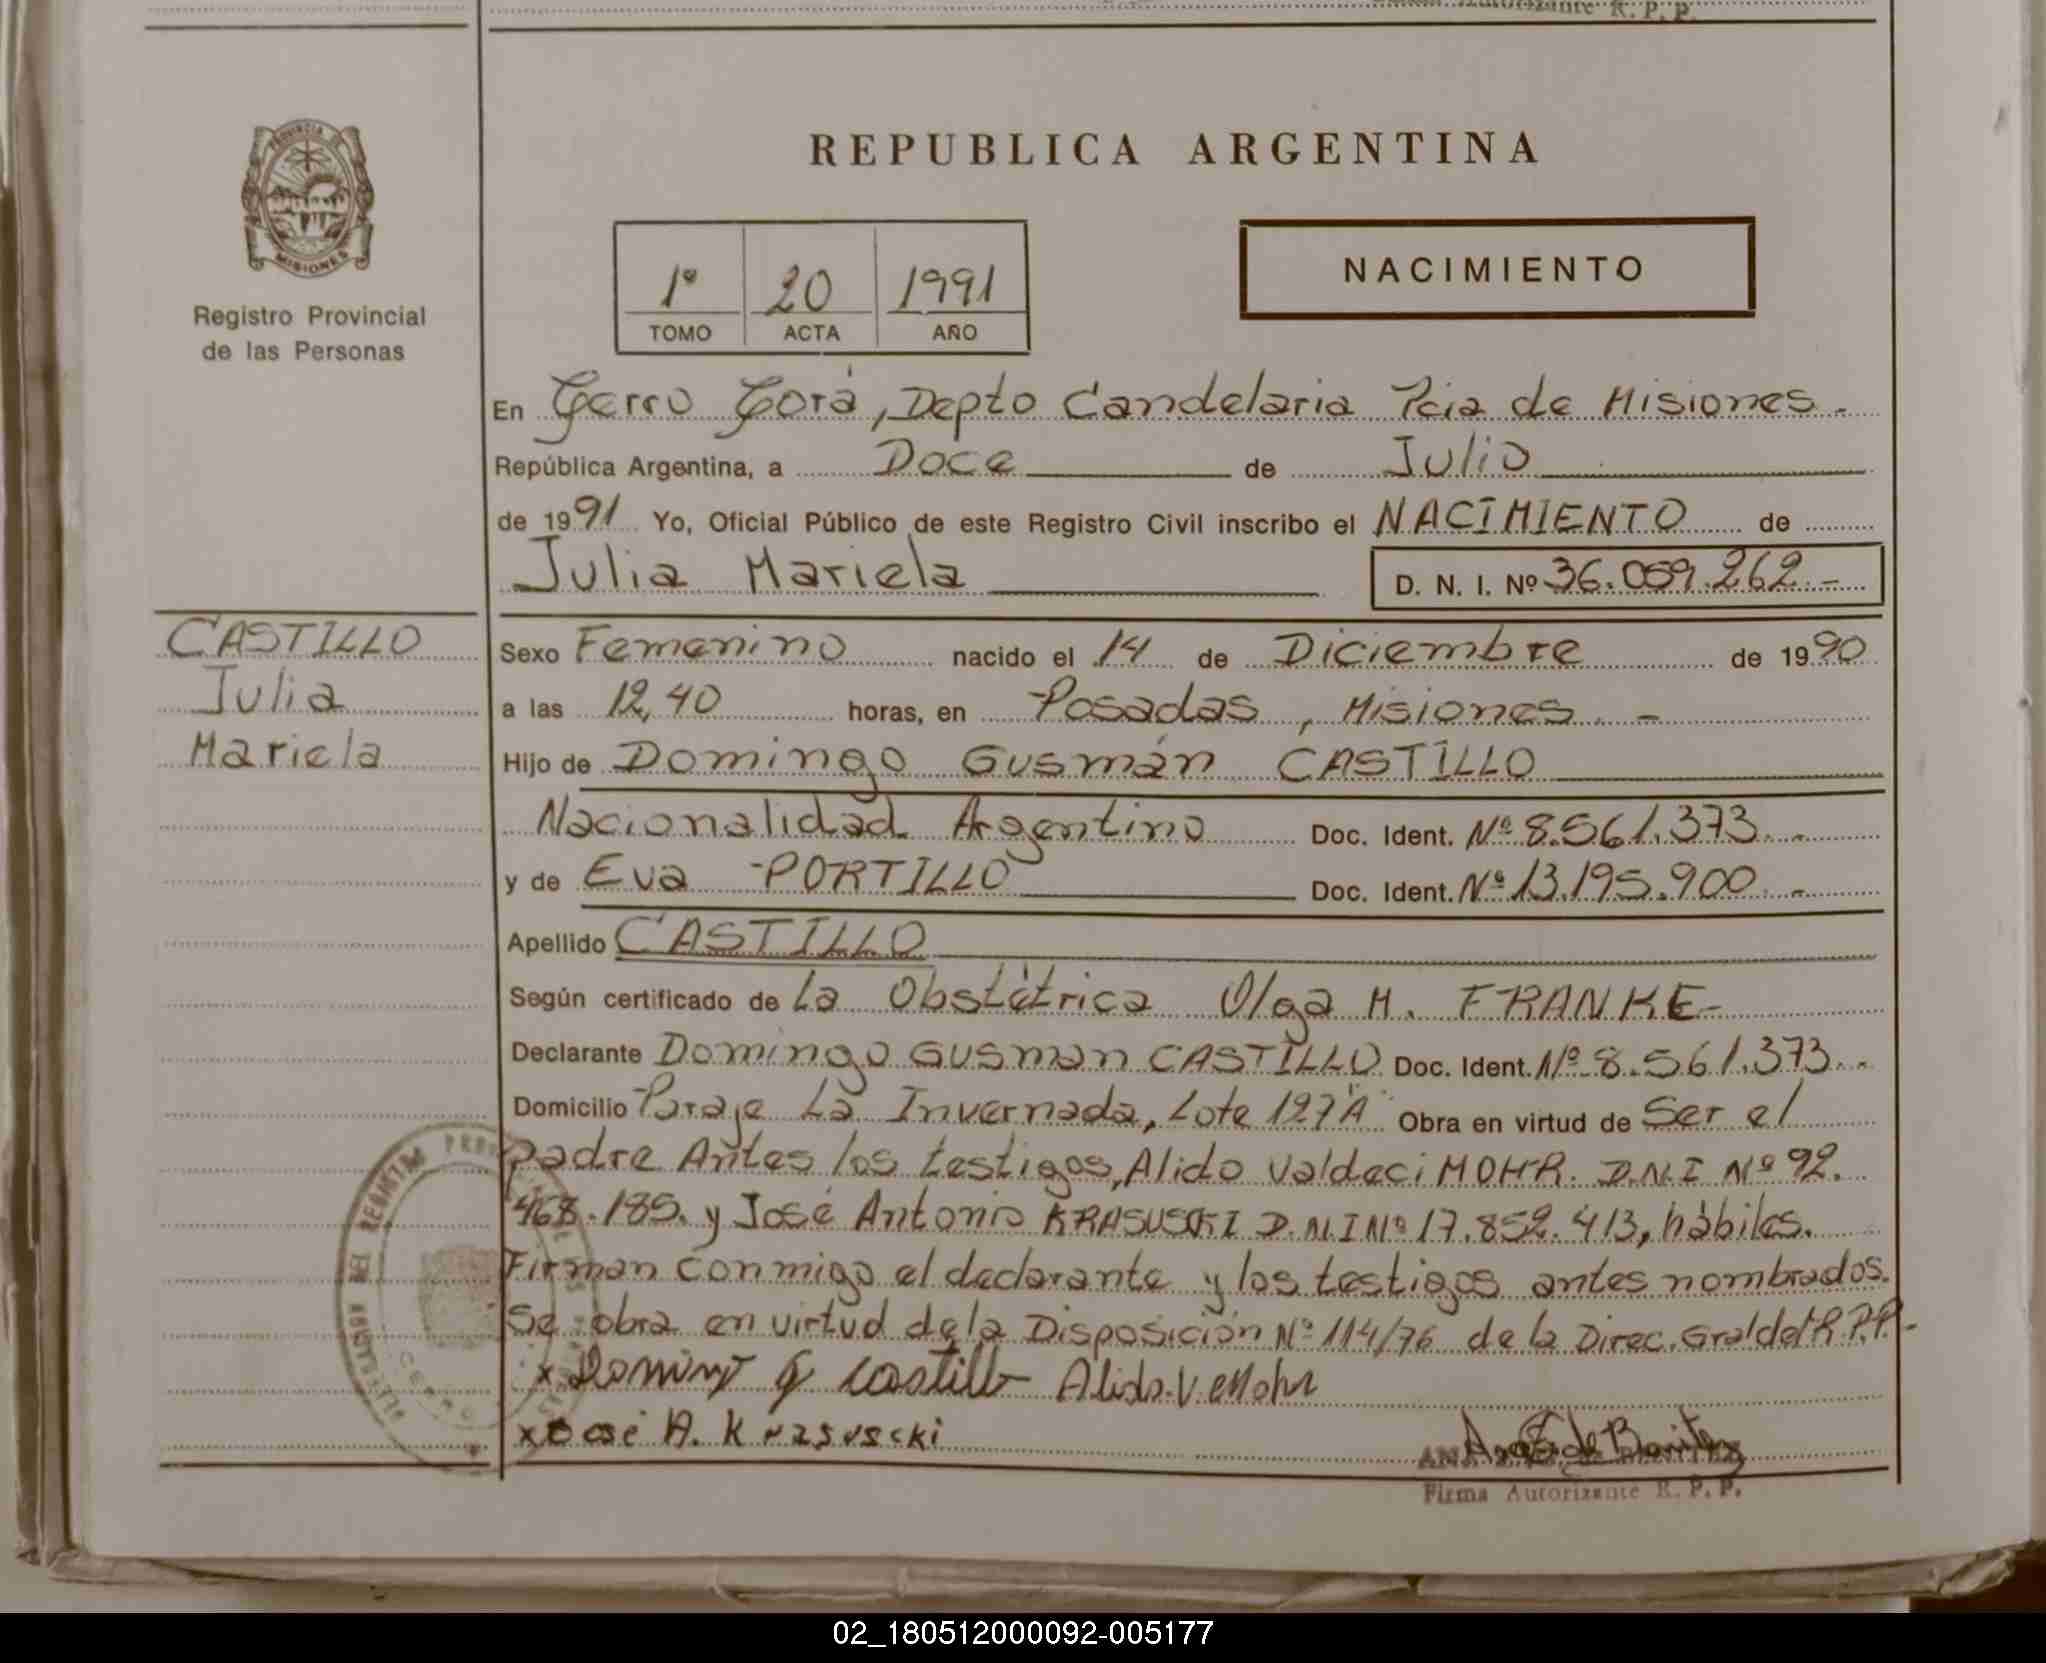 Autorizante R. P. P.
PROVINCIA DE
MISIONES
Registro Provincial
de las Personas
REPUBLICA ARGENTINA
1º 20 1991
TOMO ACTA AÑO
NACIMIENTO
En Cerro Corá, Depto Candelaria Pcia de Misiones.
República Argentina, a Doce de Julio
de 1991 Yo, Oficial Público de este Registro Civil inscribo el NACIMIENTO de
Julia Mariela D. N. I. Nº 36.059.262.-
CASTILLO
Julia
Mariela
Sexo Femenino nacido el 14 de Diciembre de 1990
a las 12,40 horas, en Posadas, Misiones. -
Hijo de Domingo Gusmán CASTILLO
Nacionalidad Argentino Doc. Ident. Nº 8.561.373. -
y de Eva PORTILLO Doc. Ident. Nº 13.195.900. -
Apellido CASTILLO
Según certificado de La Obstétrica Olga H. FRANKE-
Declarante Domingo Gusman CASTILLO Doc. Ident. Nº 8.561.373..
Domicilio Paraje La Invernada, Lote 127"A" Obra en virtud de Ser el
padre Antes los testigos, Alido Valdeci MOHR. D.N.I Nº 92.
468.185. y José Antonio KRASUSCKI D.N.I Nº 17.852.413, hábiles.
Firman conmigo el declarante y los testigos antes nombrados.
Se obra en virtud de la Disposición Nº 114/76 de la Direc. Gral del R.P.P.-
x Doming G Castillo Alido.V.Mohr
x José A. Krasuscki
Ana E de Benitez
Firma Autorizante R. P. P.
DEL REGISTRO PROV
CERRO
02_180512000092-005177